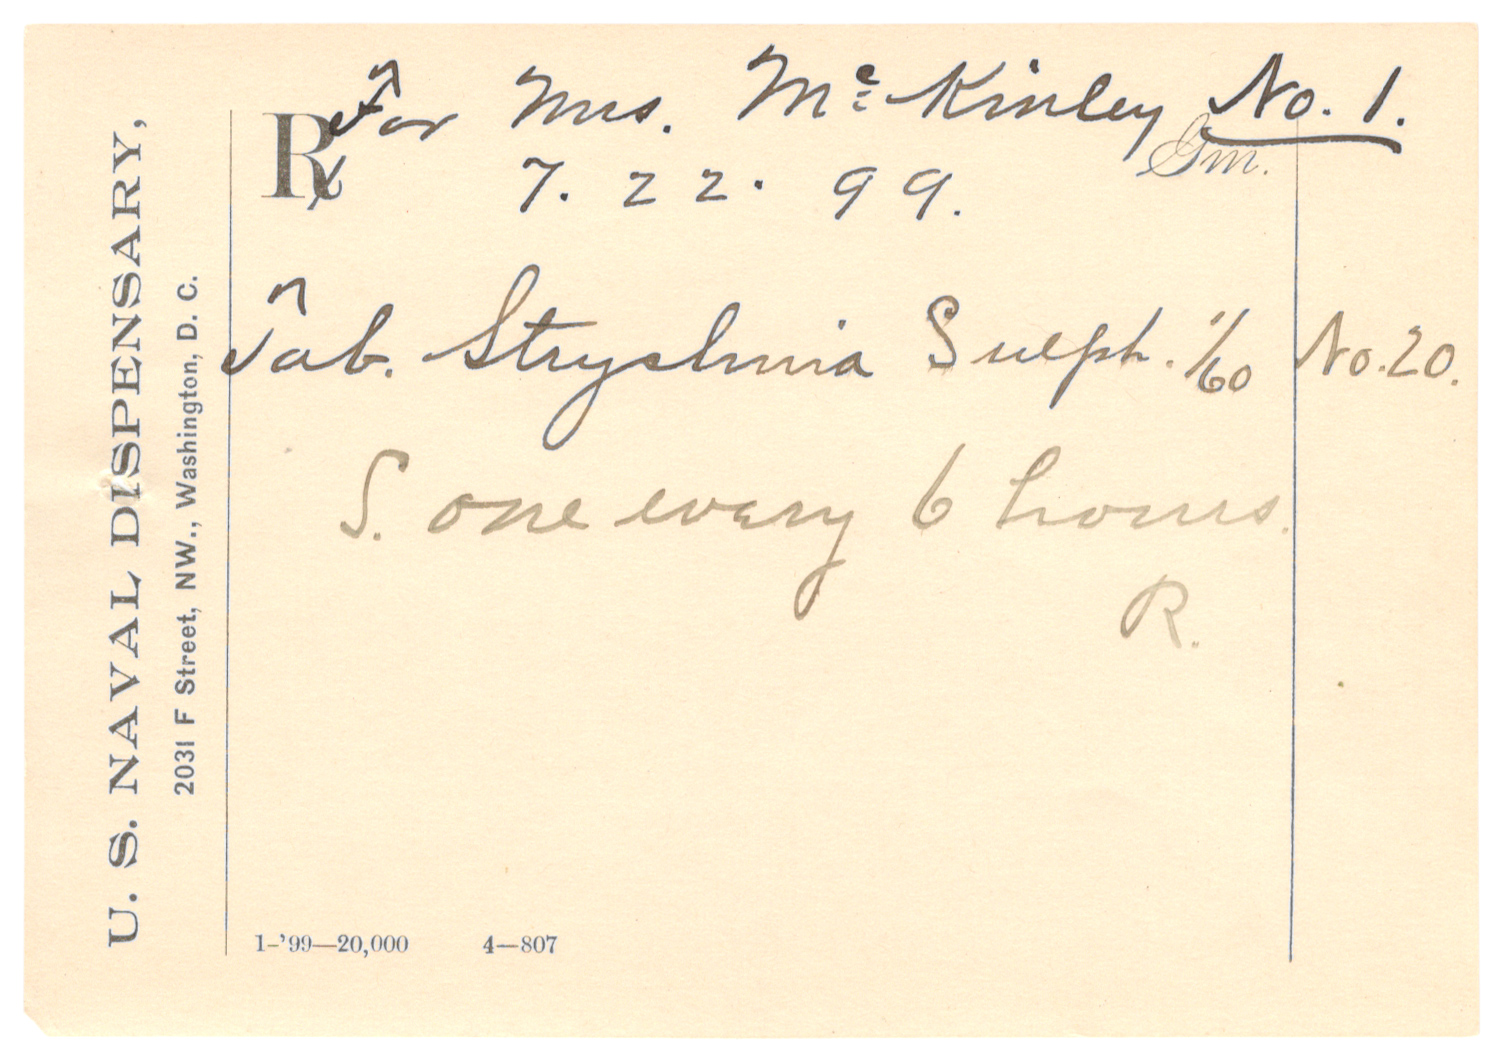 U. S. NAVAL DISPENSARY,
2031 F Street, NW., Washington, D. C.
For Mrs. McKinley No. 1.
Rx
Gm.
7. 22. 99.
Tab. Strychnia Sulph. 1/60 No. 20.
S. one every 6 hours.
R.
1-'99—20,000 4—807